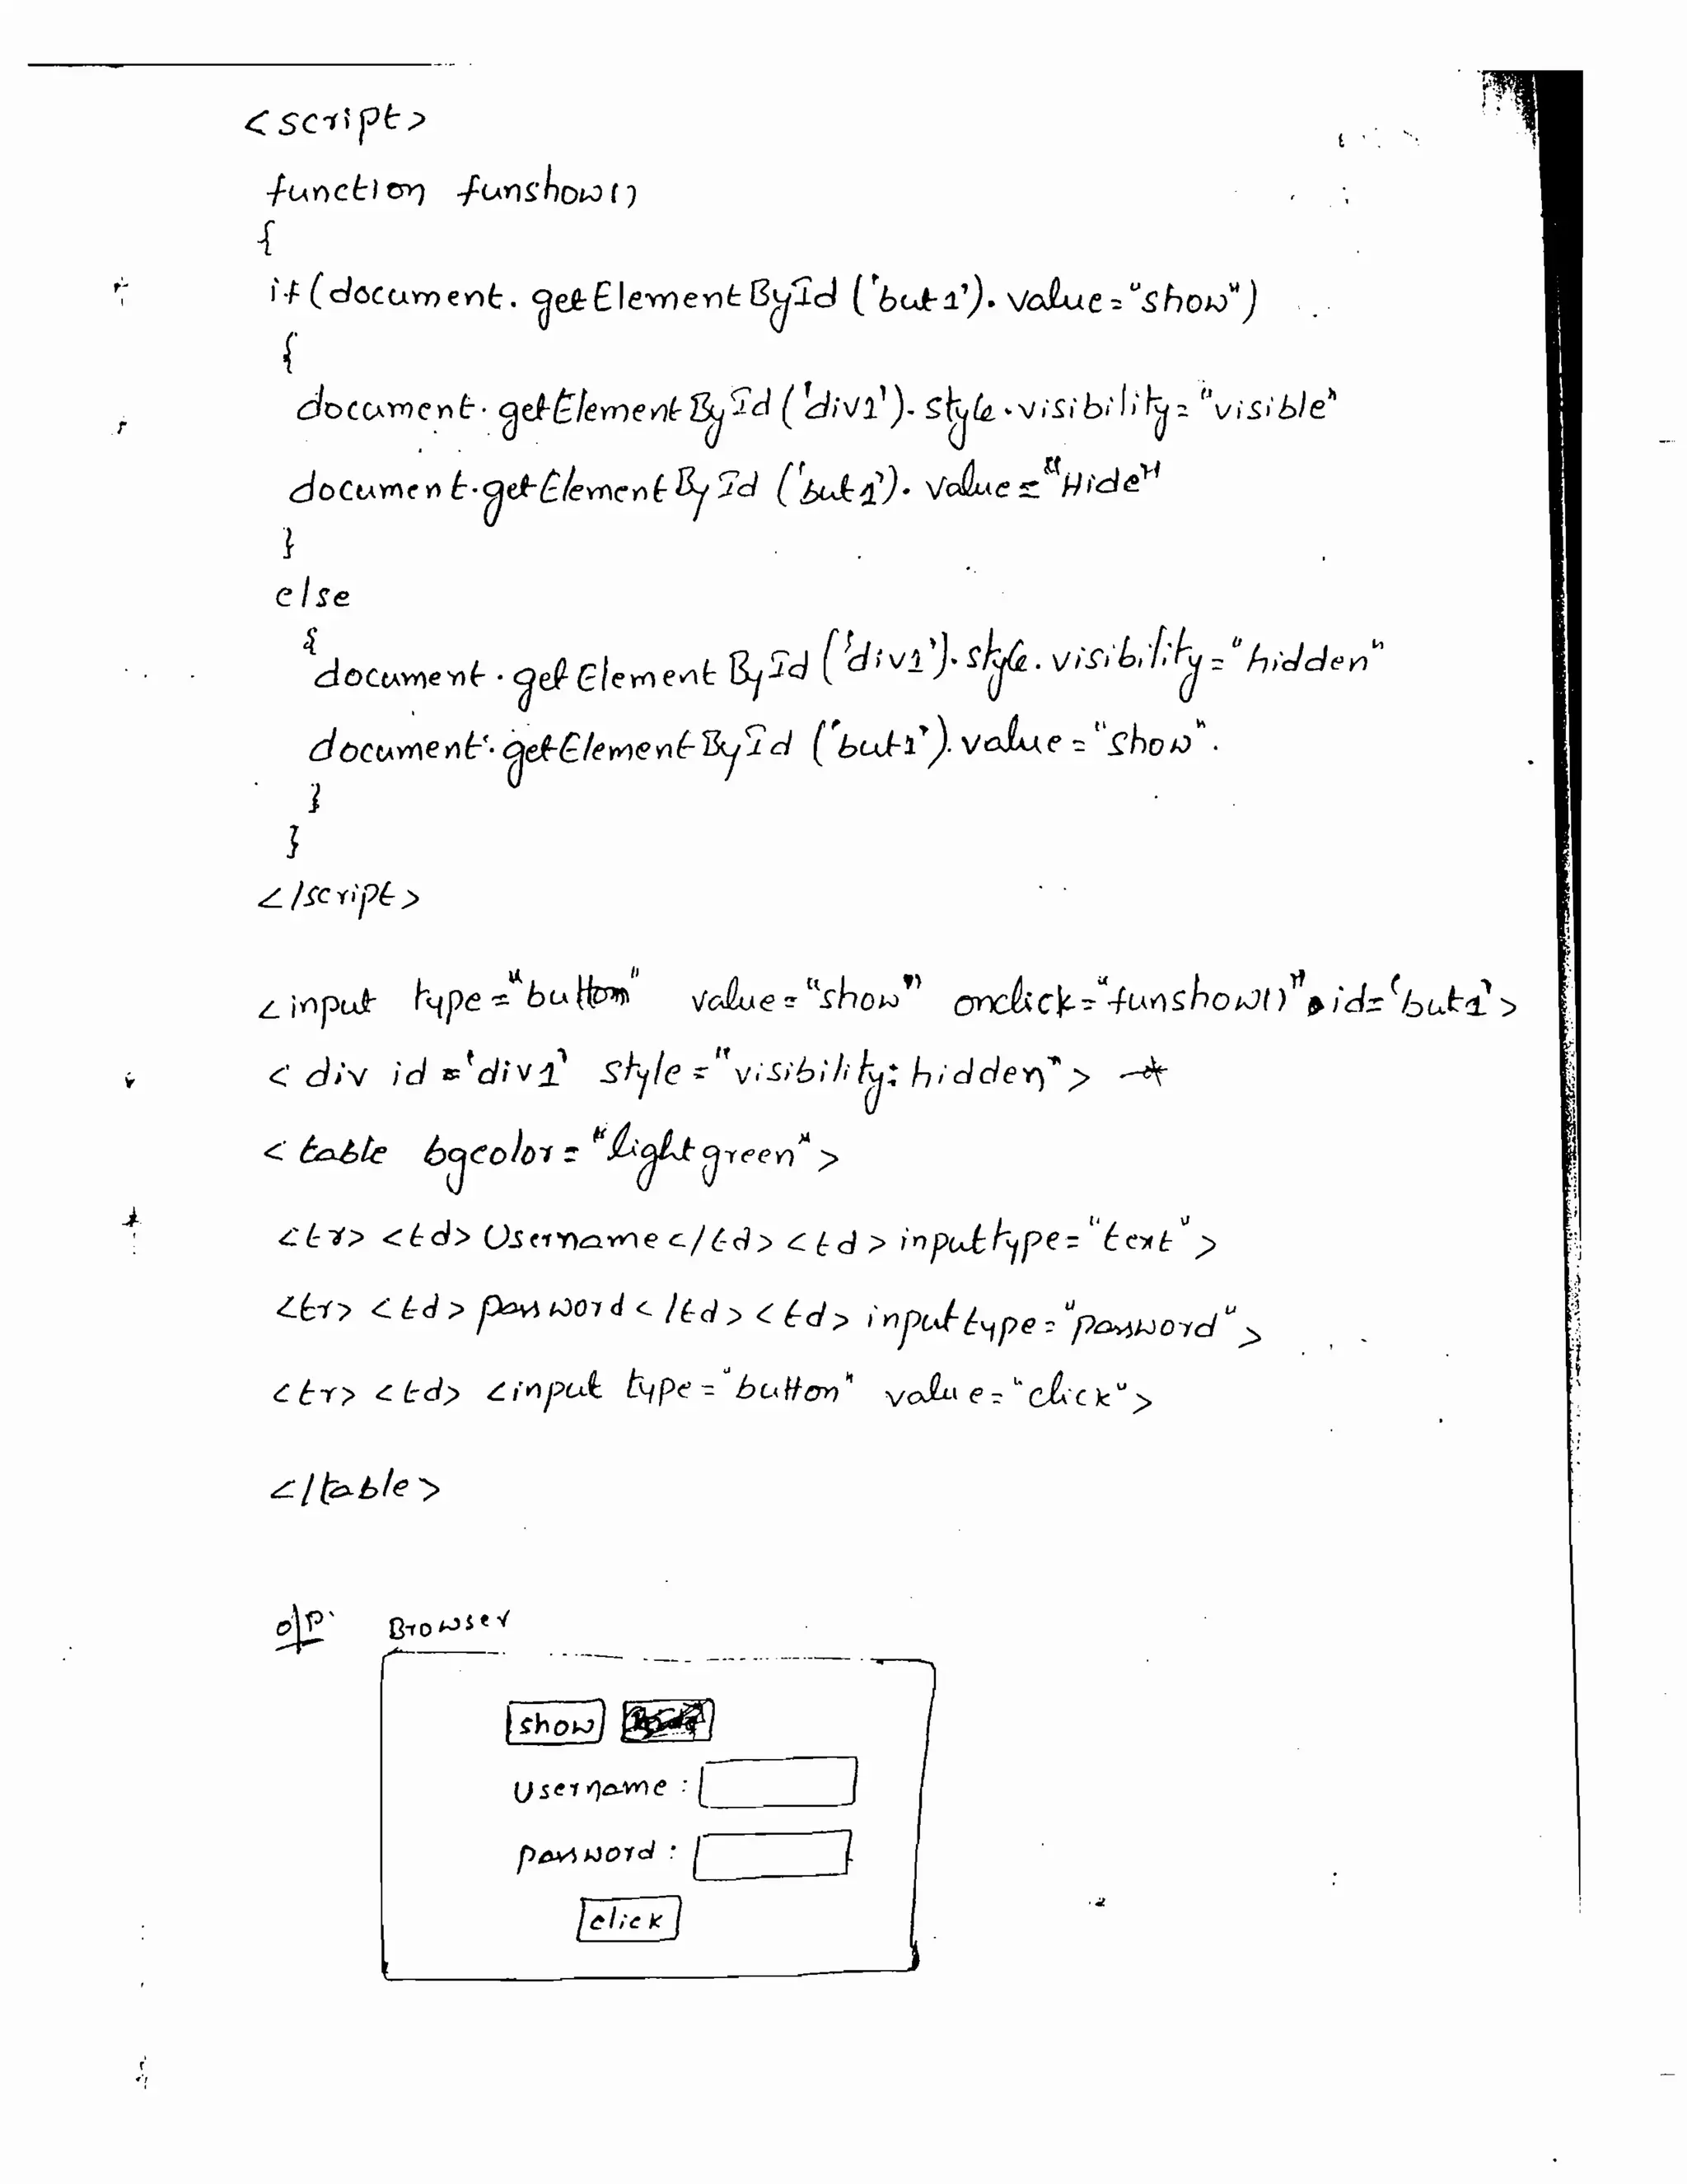 <script>
function funshow()
{
if(document.getElementById('but1').value="show")
{
document.getElementById('div1').style.visibility="visible"
document.getElementById('but1').value="Hide"
}
else
{
document.getElementById('div1').style.visibility="hidden"
document.getElementById('but1').value="show".
}
}
</script>
<input type="button" value="show" onclick="funshow()" id='but1'>
<div id='div1' style="visibility:hidden">
<table bgcolor="lightgreen">
<tr> <td> Username</td> <td> input type="text">
<tr> <td> password</td> <td> input type="password">
<tr> <td> <input type="button" value="click">
</table>
o/p: Browser
show
Username :
password :
click